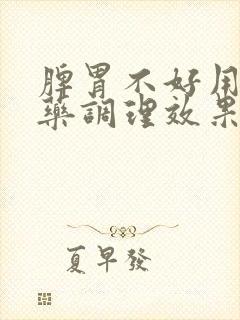 脾胃不好用
藥調理效果
夏早發